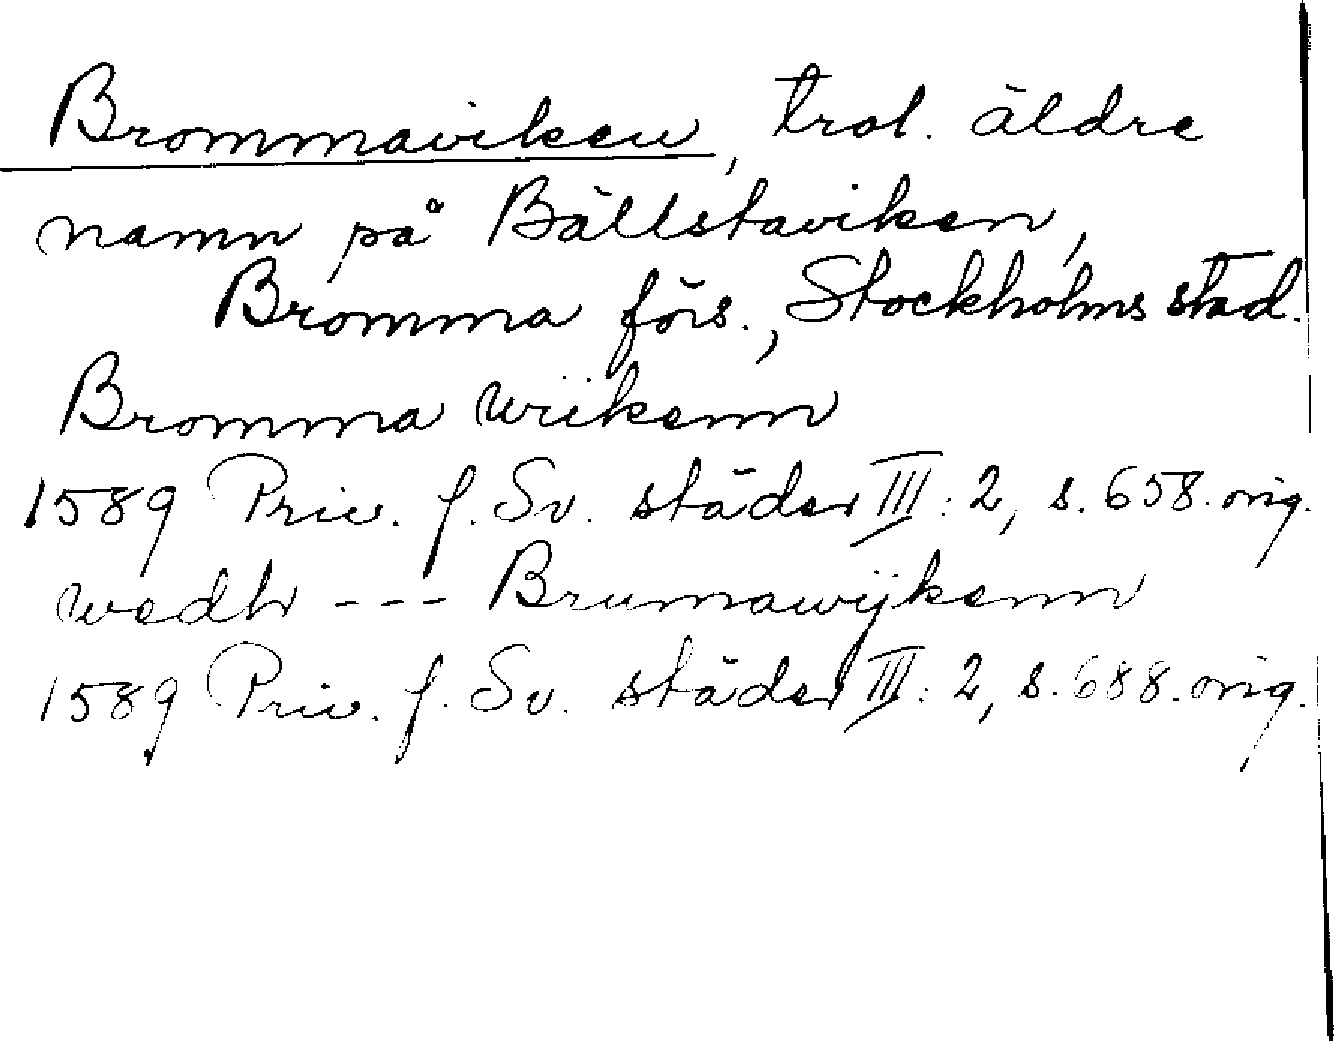 Brommaviken, trol. äldre
namn på Bällstaviken,
Bromma förs., Stockholms stad.
Bromma wiikenn
1589 Priv. f. Sv. städer III: 2, s. 658. orig.
wedh --- Brumawijkenn
1589 Priv. f. Sv. städer III: 2, s. 688. orig.